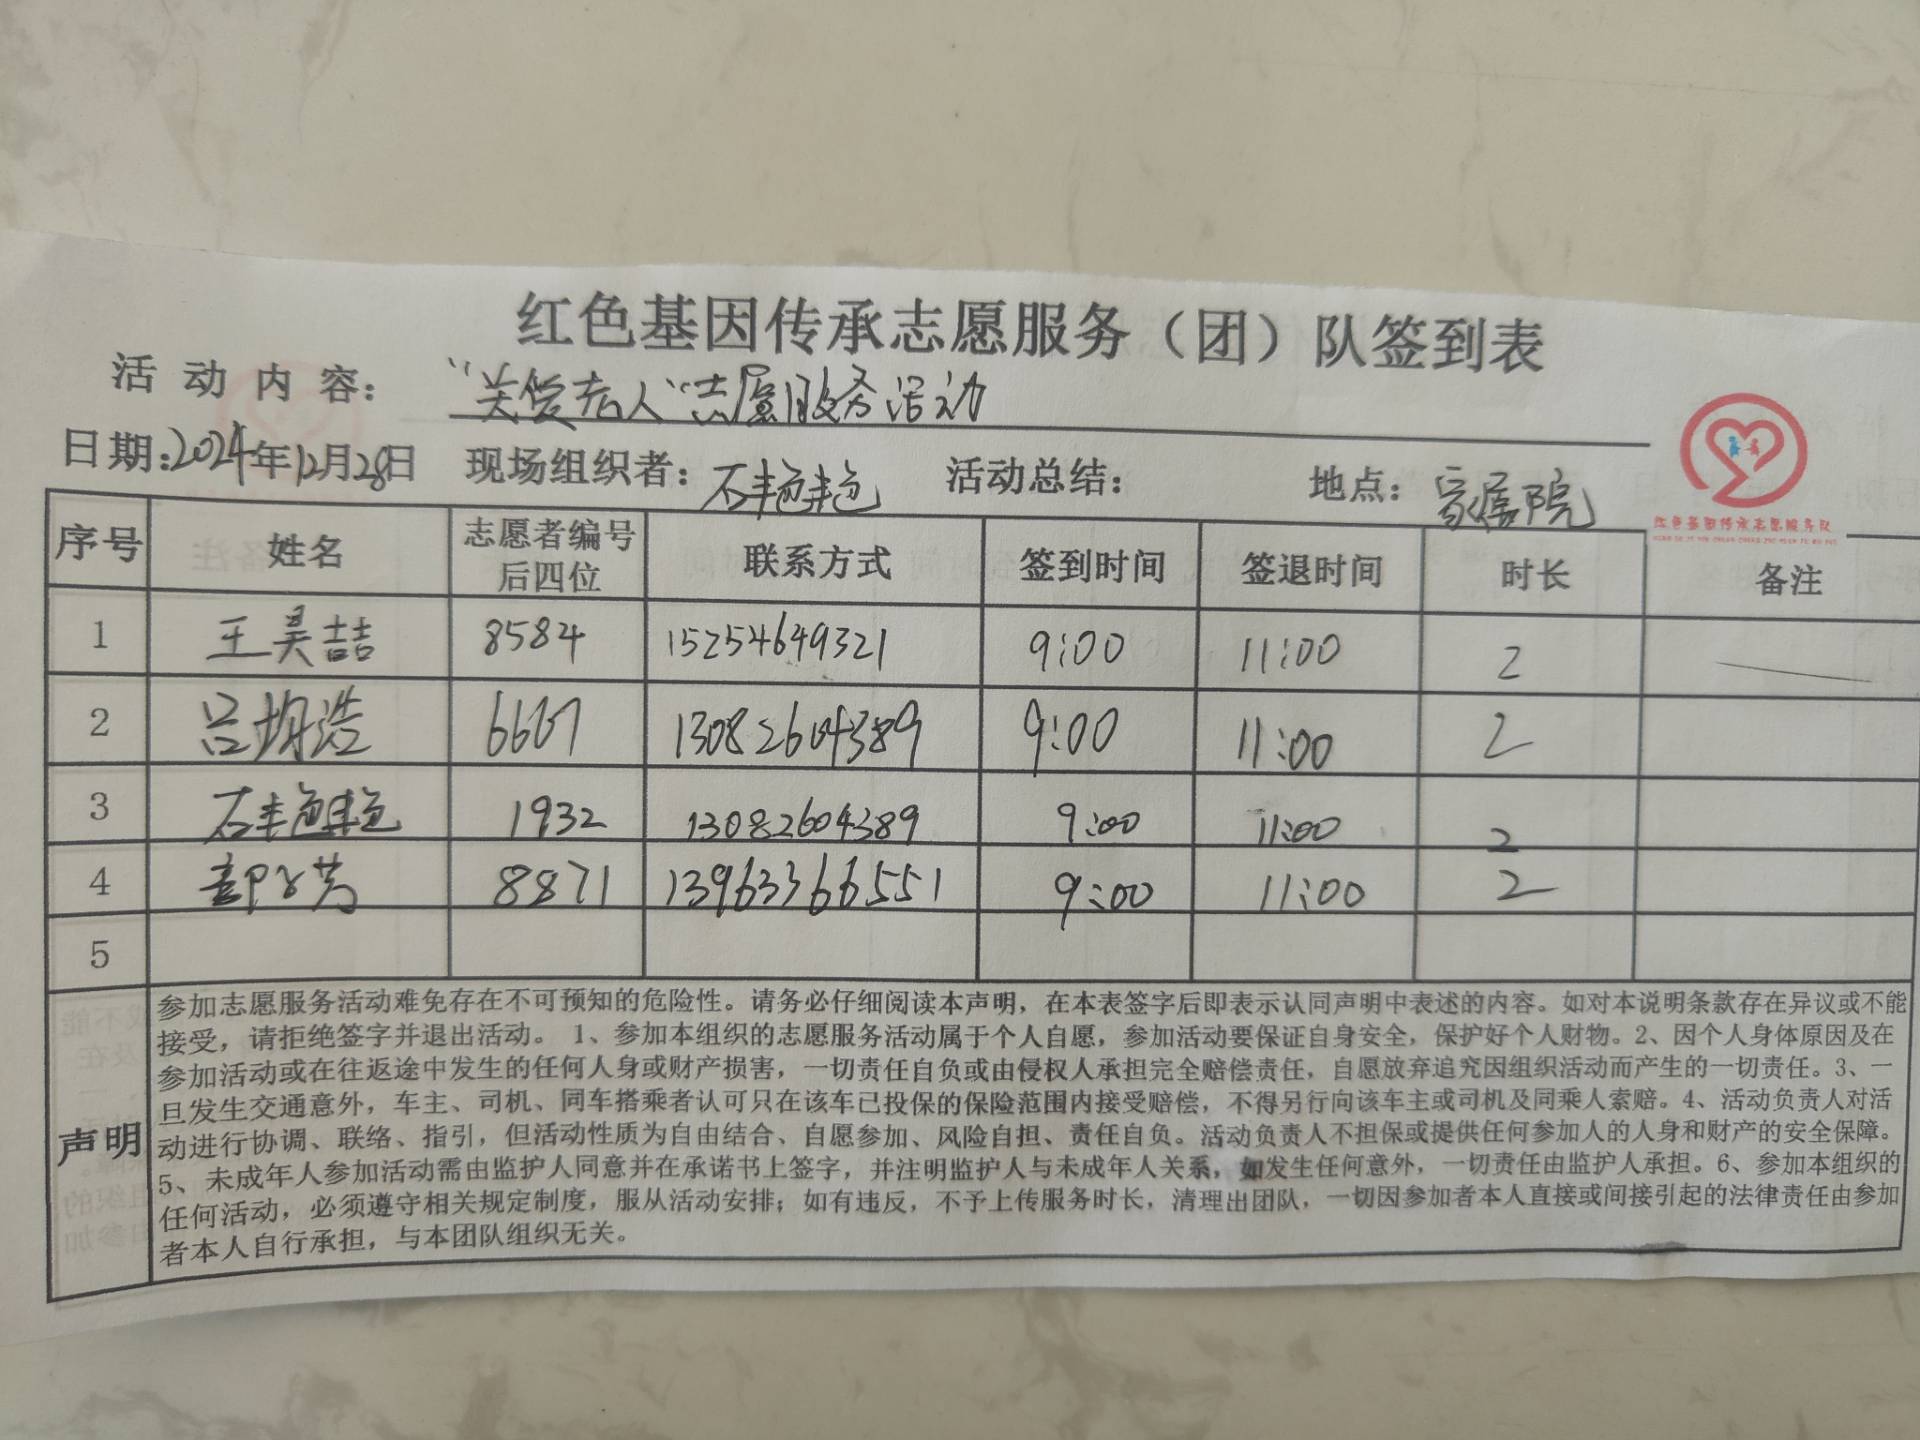 红色基因传承志愿服务（团）队签到表
活动内容："关爱老人"志愿服务活动
日期:2024年12月28日 现场组织者: 石艳艳 活动总结: 地点: 家属院
红色基因传承志愿服务队
序号 姓名 志愿者编号后四位 联系方式 签到时间 签退时间 时长 备注
1 王昊喆 8584 15254649321 9:00 11:00 2
2 吕均浩 6667 13082604389 9:00 11:00 2
3 石艳艳 1932 13082604389 9:00 11:00 2
4 8871 13963366551 9:00 11:00 2
5
声明
参加志愿服务活动难免存在不可预知的危险性。请务必仔细阅读本声明，在本表签字后即表示认同声明中表述的内容。如对本说明条款存在异议或不能
接受，请拒绝签字并退出活动。 1、参加本组织的志愿服务活动属于个人自愿，参加活动要保证自身安全，保护好个人财物。2、因个人身体原因及在
参加活动或在往返途中发生的任何人身或财产损害，一切责任自负或由侵权人承担完全赔偿责任，自愿放弃追究因组织活动而产生的一切责任。3、一
旦发生交通意外，车主、司机、同车搭乘者认可只在该车已投保的保险范围内接受赔偿，不得另行向该车主或司机及同乘人索赔。4、活动负责人对活
动进行协调、联络、指引，但活动性质为自由结合、自愿参加、风险自担、责任自负。活动负责人不担保或提供任何参加人的人身和财产的安全保障。
5、未成年人参加活动需由监护人同意并在承诺书上签字，并注明监护人与未成年人关系，如发生任何意外，一切责任由监护人承担。6、参加本组织的
任何活动，必须遵守相关规定制度，服从活动安排；如有违反，不予上传服务时长，清理出团队，一切因参加者本人直接或间接引起的法律责任由参加
者本人自行承担，与本团队组织无关。